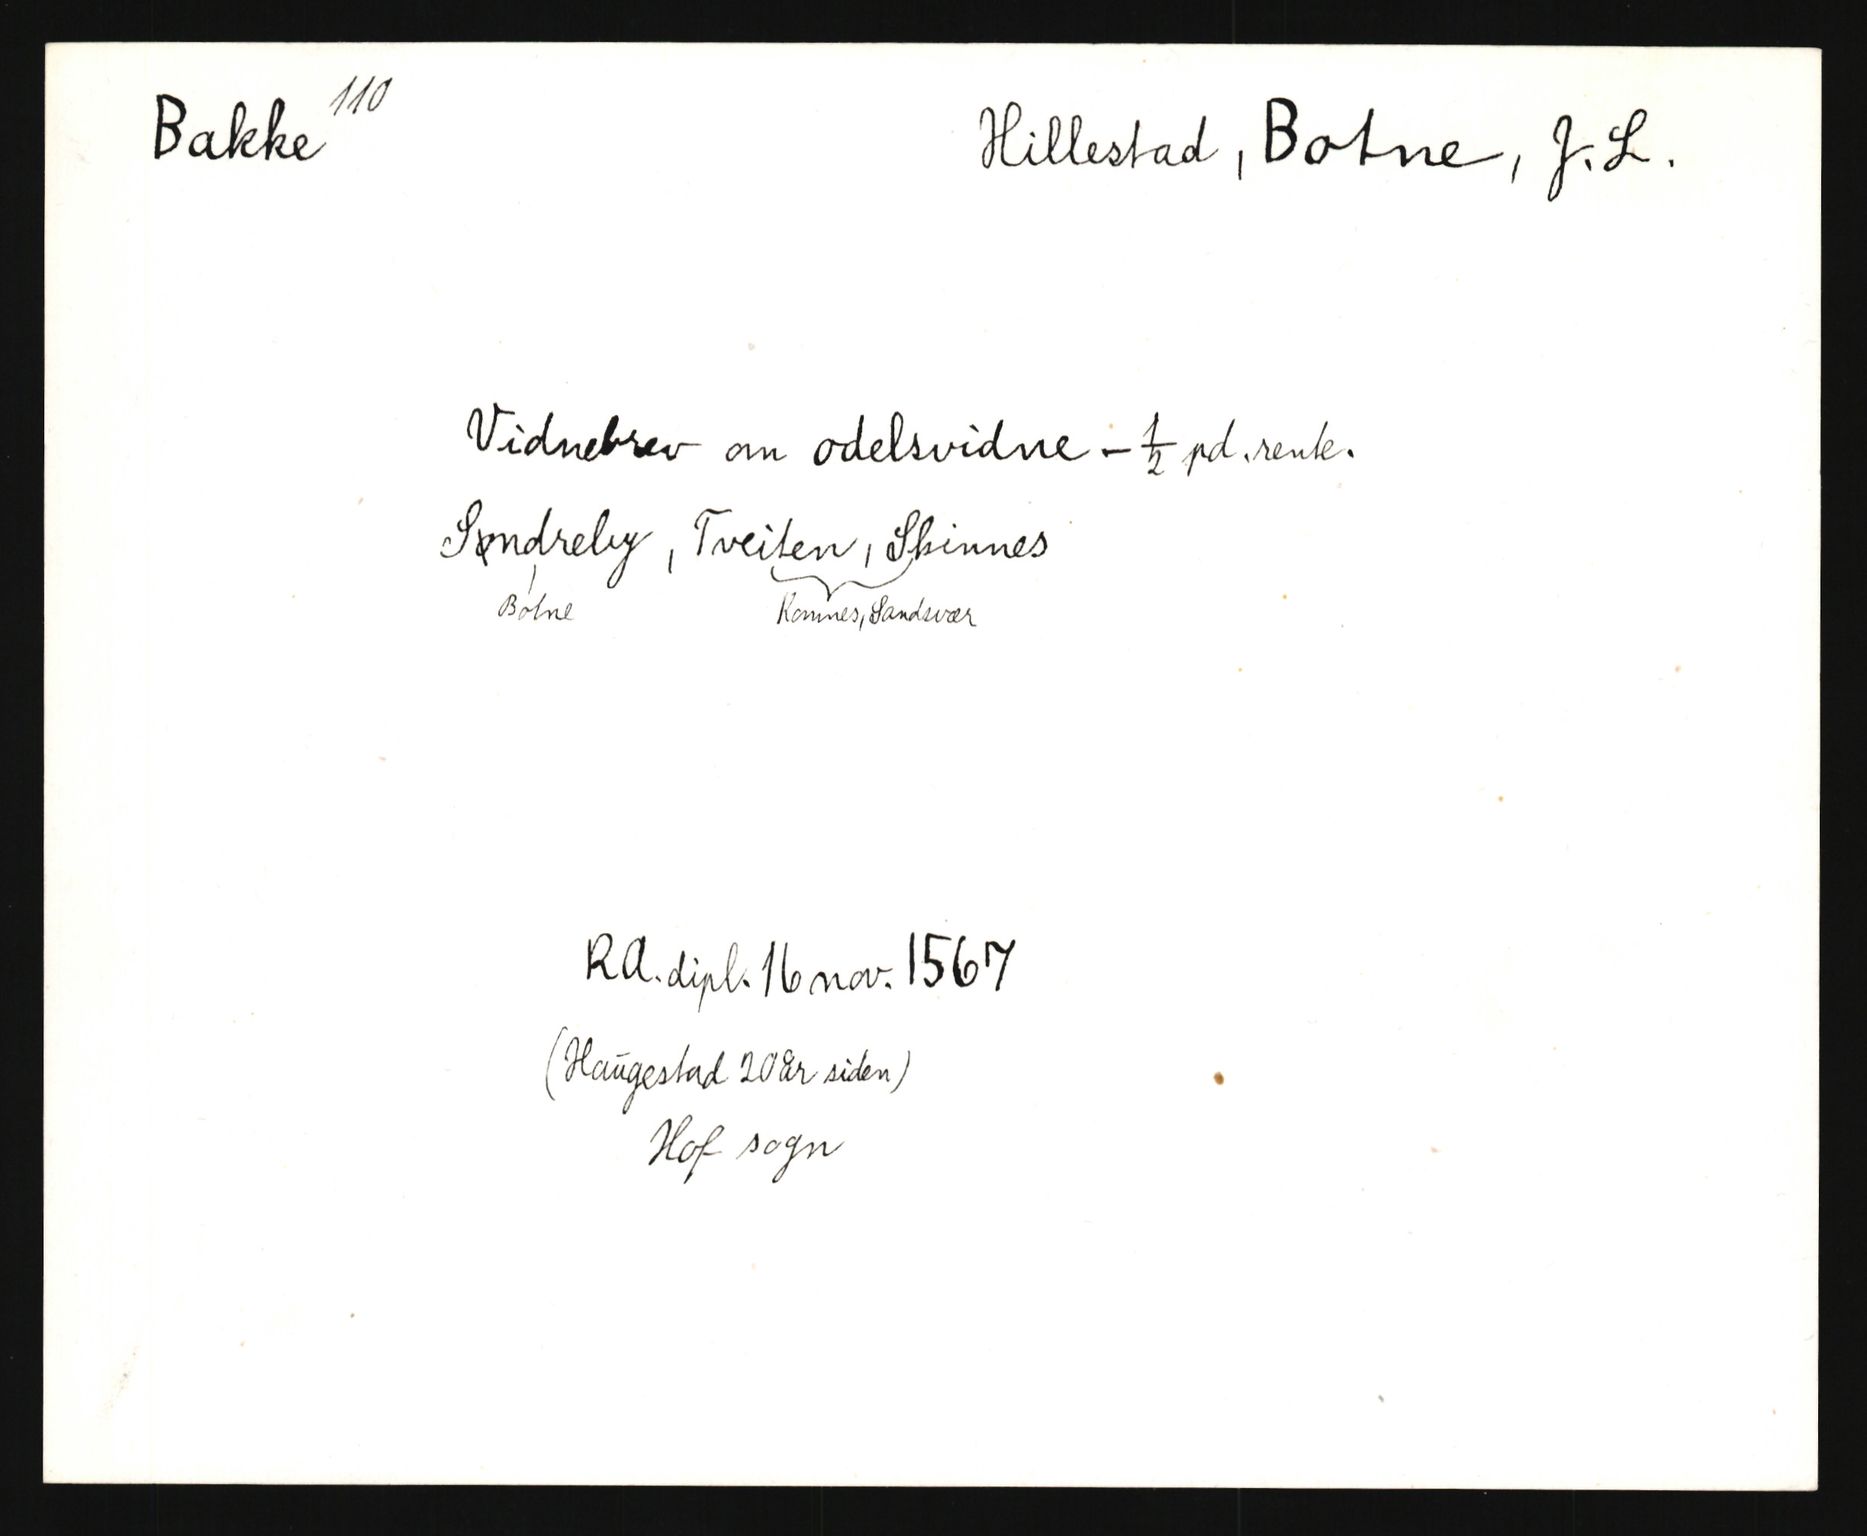 Bakke 110
Hillestad, Botne, J.L.
Vidnebrev om odelsvidne – 1/2 pd. rente.
Søndreby, Tveiten, Skinnes
Botne
Komnes, Sandsvær
RA. dipl. 16 nov. 1567
(Haugestad 20 år siden)
Hof sogn